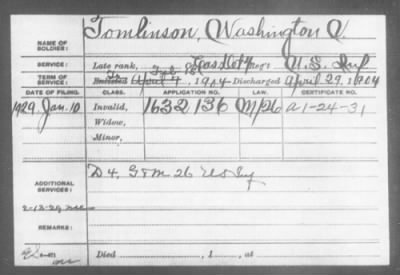 NAME OF SOLDIER: Tomlinson, Washington V.
SERVICE: Late rank, Reg't U.S. Inf
TERM OF SERVICE: Enlisted April 7, 1904 Discharged April 29, 1904
DATE OF FILING. CLASS. APPLICATION NO. LAW. CERTIFICATE NO.
1929, Jan. 10 Invalid, 1632136 A1-24-31
Widow,
Minor,
ADDITIONAL SERVICES: D 4, 26
2-13-29
REMARKS:
Died , 1 , at